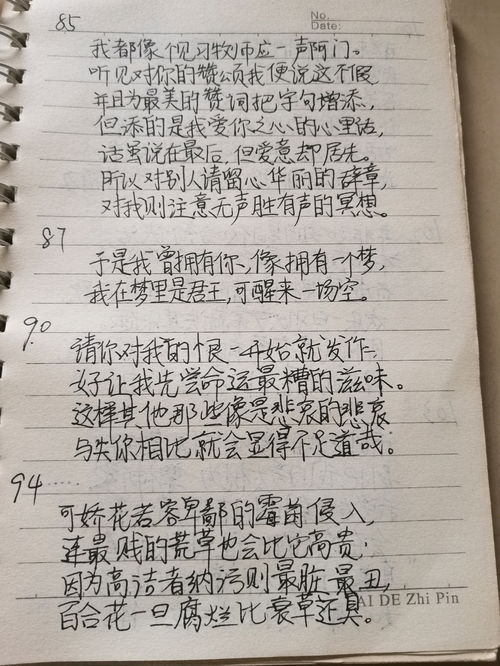 No.
Date:
85
我都像个见习牧师应一声阿门。
听见对你的赞颂我便说这不假
并且为最美的赞词把字句增添,
但添的是我爱你之心的心里话,
话虽说在最后,但爱意却居先。
所以对别人请留心华丽的辞章,
对我则注意无声胜有声的冥想。
87
于是我曾拥有你,像拥有一个梦,
我在梦里是君王,可醒来一场空。
90
请你对我的恨一开始就发作,
好让我先尝命运最糟的滋味。
这样其他那些像是悲哀的悲哀
与失你相比就会显得不足道哉;
94……
可娇花若容卑鄙的霉菌侵入,
连最贱的荒草也会比它高贵;
因为高洁者纳污则最脏最丑,
百合花一旦腐烂比衰草还臭。
AI DE Zhi Pin